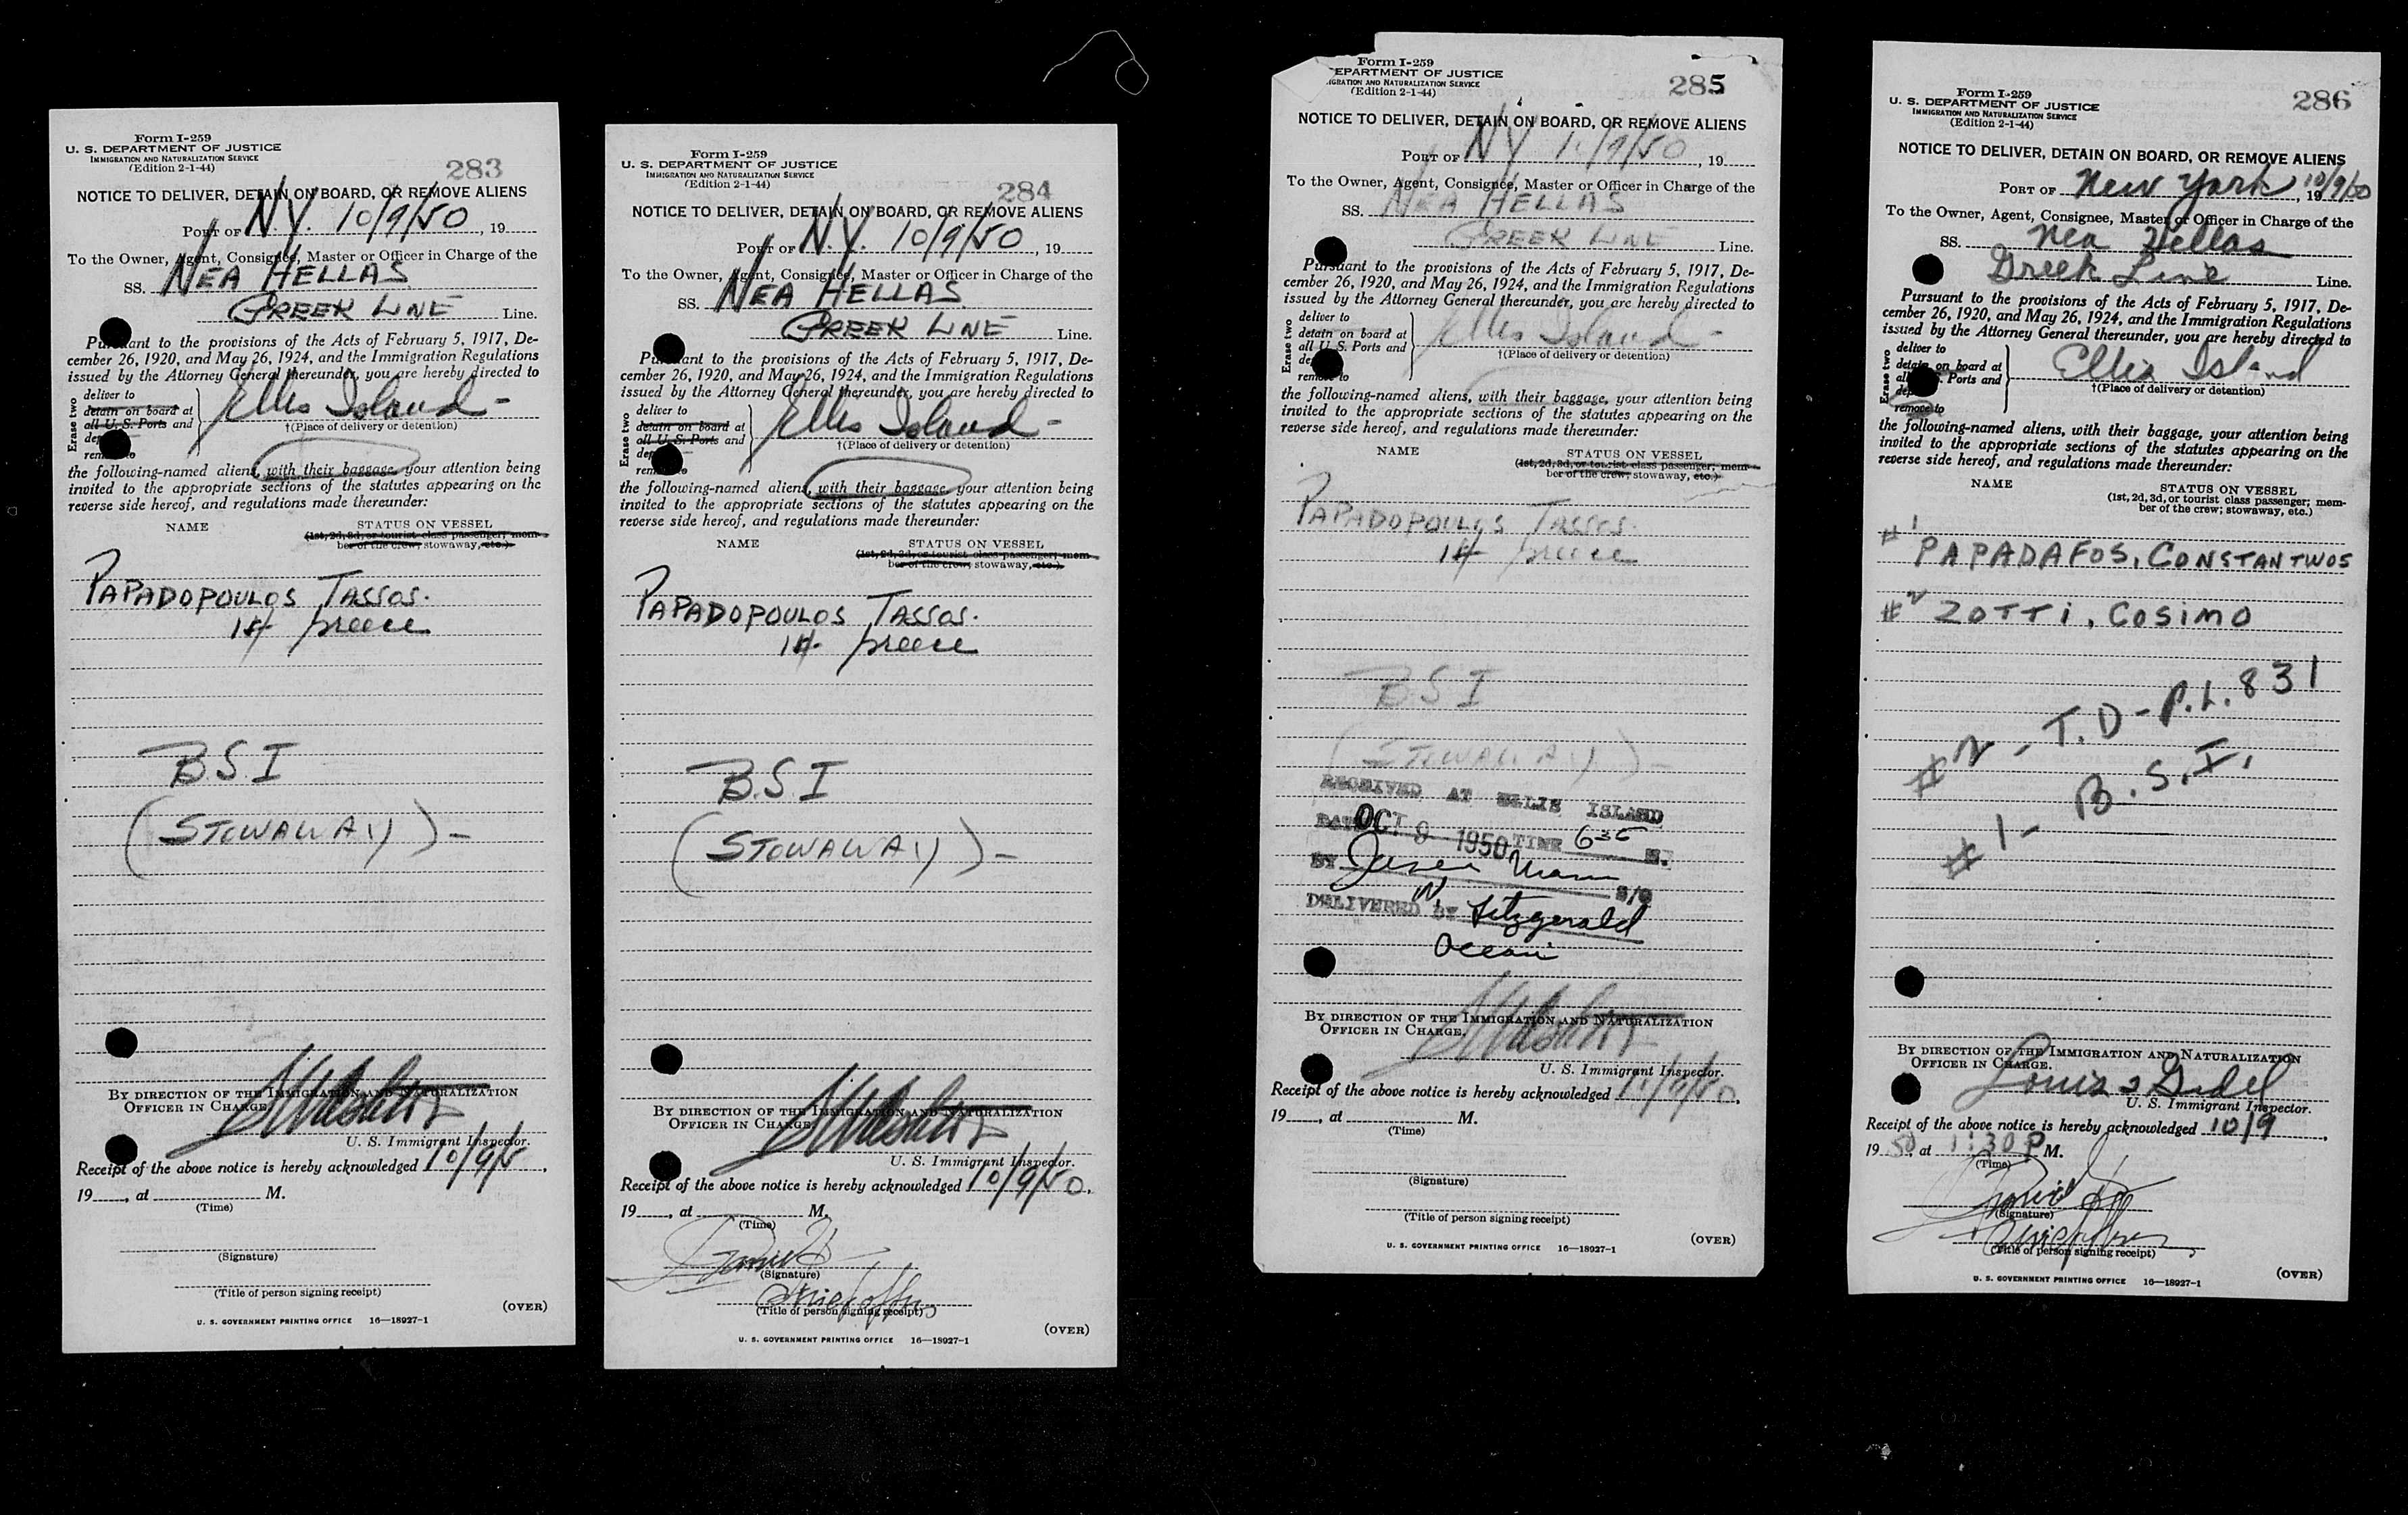 Form I-259
U. S. DEPARTMENT OF JUSTICE
IMMIGRATION AND NATURALIZATION SERVICE
(Edition 2-1-44)
283
NOTICE TO DELIVER, DETAIN ON BOARD, OR REMOVE ALIENS
PORT OF N.Y. 10/9/50, 19
To the Owner, Agent, Consignee, Master or Officer in Charge of the
SS. NEA HELLAS
GREEK LINE Line.
Pursuant to the provisions of the Acts of February 5, 1917, De-
cember 26, 1920, and May 26, 1924, and the Immigration Regulations
issued by the Attorney General thereunder, you are hereby directed to
Erase two
deliver to
detain on board at
all U. S. Ports and
remove to
Ellis Island -
†(Place of delivery or detention)
the following-named aliens, with their baggage, your attention being
invited to the appropriate sections of the statutes appearing on the
reverse side hereof, and regulations made thereunder:
NAME STATUS ON VESSEL
(1st, 2d, 3d, or tourist class passenger; mem-
ber of the crew; stowaway, etc.)
PAPADOPOULOS TASSOS.
Greece
B.S.I
(STOWAWAY) -
BY DIRECTION OF THE IMMIGRATION AND NATURALIZATION
OFFICER IN CHARGE.
U. S. Immigrant Inspector.
Receipt of the above notice is hereby acknowledged 10/9/5,
19, at M.
(Time)
(Signature)
(Title of person signing receipt)
(OVER)
U. S. GOVERNMENT PRINTING OFFICE 16—18927-1
Form I-259
U. S. DEPARTMENT OF JUSTICE
IMMIGRATION AND NATURALIZATION SERVICE
(Edition 2-1-44)
284
NOTICE TO DELIVER, DETAIN ON BOARD, OR REMOVE ALIENS
PORT OF N.Y. 10/9/50, 19
To the Owner, Agent, Consignee, Master or Officer in Charge of the
SS. NEA HELLAS
GREEK LINE Line.
Pursuant to the provisions of the Acts of February 5, 1917, De-
cember 26, 1920, and May 26, 1924, and the Immigration Regulations
issued by the Attorney General thereunder, you are hereby directed to
Erase two
deliver to
detain on board at
all U. S. Ports and
remove to
Ellis Island -
†(Place of delivery or detention)
the following-named aliens, with their baggage, your attention being
invited to the appropriate sections of the statutes appearing on the
reverse side hereof, and regulations made thereunder:
NAME STATUS ON VESSEL
(1st, 2d, 3d, or tourist class passenger; mem-
ber of the crew; stowaway, etc.)
PAPADOPOULOS TASSOS.
Greece
B.S.I
(STOWAWAY) -
BY DIRECTION OF THE IMMIGRATION AND NATURALIZATION
OFFICER IN CHARGE.
U. S. Immigrant Inspector.
Receipt of the above notice is hereby acknowledged 10/9/50,
19, at M.
(Time)
(Signature)
(Title of person signing receipt)
(OVER)
U. S. GOVERNMENT PRINTING OFFICE 16—18927-1
Form I-259
EPARTMENT OF JUSTICE
IGRATION AND NATURALIZATION SERVICE
(Edition 2-1-44)
285
NOTICE TO DELIVER, DETAIN ON BOARD, OR REMOVE ALIENS
PORT OF NY 10/9/50, 19
To the Owner, Agent, Consignee, Master or Officer in Charge of the
SS. NEA HELLAS
GREEK LINE Line.
Pursuant to the provisions of the Acts of February 5, 1917, De-
cember 26, 1920, and May 26, 1924, and the Immigration Regulations
issued by the Attorney General thereunder, you are hereby directed to
Erase two
deliver to
detain on board at
all U. S. Ports and
remove to
Ellis Island -
†(Place of delivery or detention)
the following-named aliens, with their baggage, your attention being
invited to the appropriate sections of the statutes appearing on the
reverse side hereof, and regulations made thereunder:
NAME STATUS ON VESSEL
(1st, 2d, 3d, or tourist class passenger; mem-
ber of the crew; stowaway, etc.)
PAPADOPOULOS TASSOS.
Greece
B S I
(STOWAWAY) -
RECEIVED AT ELLIS ISLAND
DATE OCT 9 1950 TIME 635 M.
BY Mann
S/O
DELIVERED BY Fitzgerald
Ocean
BY DIRECTION OF THE IMMIGRATION AND NATURALIZATION
OFFICER IN CHARGE.
U. S. Immigrant Inspector.
Receipt of the above notice is hereby acknowledged 10/9/50,
19, at M.
(Time)
(Signature)
(Title of person signing receipt)
(OVER)
U. S. GOVERNMENT PRINTING OFFICE 16—18927-1
Form I-259
U. S. DEPARTMENT OF JUSTICE
IMMIGRATION AND NATURALIZATION SERVICE
(Edition 2-1-44)
286
NOTICE TO DELIVER, DETAIN ON BOARD, OR REMOVE ALIENS
PORT OF New York, 19 10/9/50
To the Owner, Agent, Consignee, Master or Officer in Charge of the
SS. Nea Hellas
Greek Line Line.
Pursuant to the provisions of the Acts of February 5, 1917, De-
cember 26, 1920, and May 26, 1924, and the Immigration Regulations
issued by the Attorney General thereunder, you are hereby directed to
Erase two
deliver to
detain on board at
Ports and
remove to
Ellis Island
†(Place of delivery or detention)
the following-named aliens, with their baggage, your attention being
invited to the appropriate sections of the statutes appearing on the
reverse side hereof, and regulations made thereunder:
NAME STATUS ON VESSEL
(1st, 2d, 3d, or tourist class passenger; mem-
ber of the crew; stowaway, etc.)
#1 PAPADAFOS, CONSTANTINOS
#2 ZOTTI, COSIMO
#2 - T.D - P.L. 831
#1 - B.S.I.
BY DIRECTION OF THE IMMIGRATION AND NATURALIZATION
OFFICER IN CHARGE.
Louis
U. S. Immigrant Inspector.
Receipt of the above notice is hereby acknowledged 10/9,
19 50, at 1:30 P M.
(Time)
(Signature)
(Title of person signing receipt)
(OVER)
U. S. GOVERNMENT PRINTING OFFICE 16—18927-1